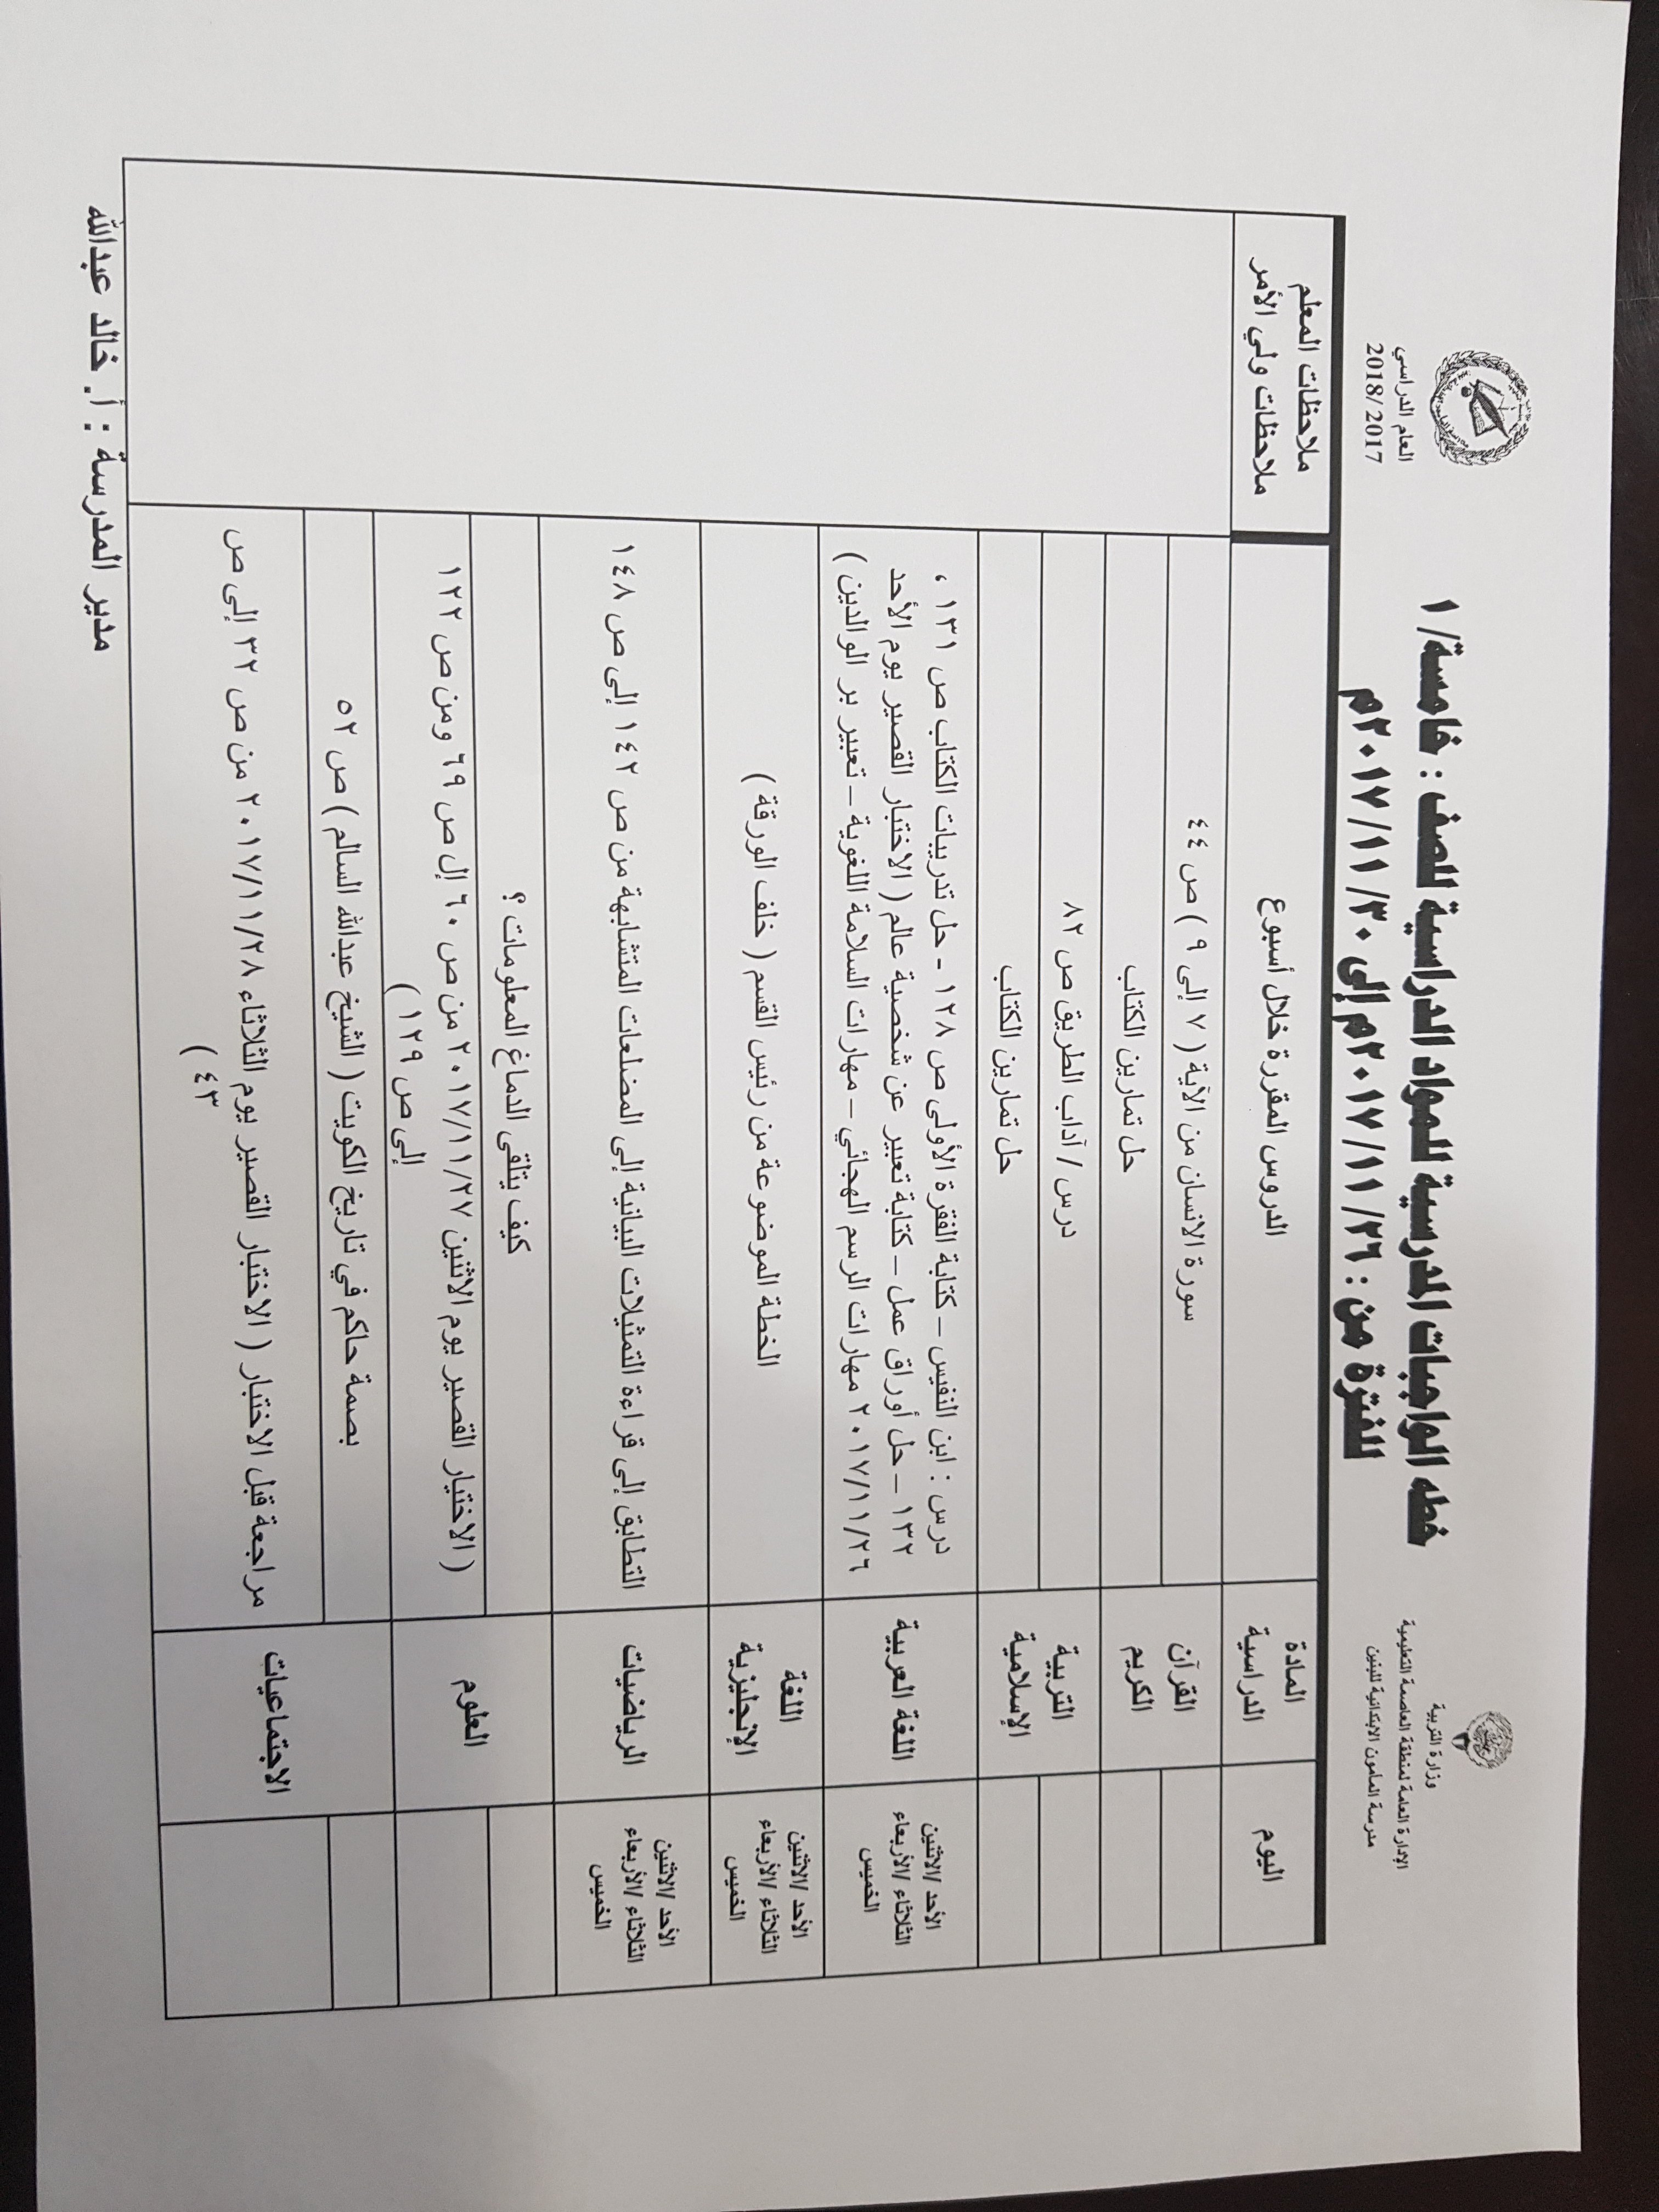 وزارة التربية
الإدارة العامة لمنطقة العاصمة التعليمية
مدرسة المامون الابتدائية للبنين
خطه الواجبات المدرسية للمواد الدراسية للصف : خامسة/ ١
للفترة من : ٢٦/ ١١/ ٢٠١٧م إلى ٣٠/ ١١/ ٢٠١٧م
العام الدراسي
2018/ 2017
اليوم
المادة
الدراسية
الدروس المقررة خلال أسبوع
ملاحظات المعلم
ملاحظات ولي الأمر
القرآن
الكريم
سورة الانسان من الآية ( ٧ إلى ٩ ) ص ٤٤
حل تمارين الكتاب
التربية
الإسلامية
درس / آداب الطريق ص ٨٢
حل تمارين الكتاب
الأحد /الاثنين
الثلاثاء /الأربعاء
الخميس
اللغة العربية
درس : ابن النفيس – كتابة الفقرة الأولى ص ١٢٨ - حل تدريبات الكتاب ص ١٣١ ،
١٣٢ – حل أوراق عمل – كتابة تعبير عن شخصية عالم ( الاختبار القصير يوم الأحد
٢٠١٧/١١/٢٦ مهارات الرسم الهجائي – مهارات السلامة اللغوية – تعبير بر الوالدين )
الأحد /الاثنين
الثلاثاء /الأربعاء
الخميس
اللغة
الإنجليزية
الخطة الموضوعة من رئيس القسم ( خلف الورقة )
الأحد /الاثنين
الثلاثاء /الأربعاء
الخميس
الرياضيات
التطابق إلى قراءة التمثيلات البيانية إلى المضلعات المتشابهة من ص ١٤٢ إلى ص ١٤٨
العلوم
كيف يتلقى الدماغ المعلومات ؟
( الاختبار القصير يوم الاثنين ٢٠١٧/١١/٢٧ من ص ٦٠ إل ص ٦٩ ومن ص ١٢٢
إلى ص ١٢٩ )
الاجتماعيات
بصمة حاكم في تاريخ الكويت ( الشيخ عبدالله السالم ) ص ٥٢
مراجعة قبل الاختبار ( الاختبار القصير يوم الثلاثاء ٢٠١٧/١١/٢٨ من ص ٣٢ إلى ص
٤٣ )
مدير المدرسة : أ. خالد عبدالله